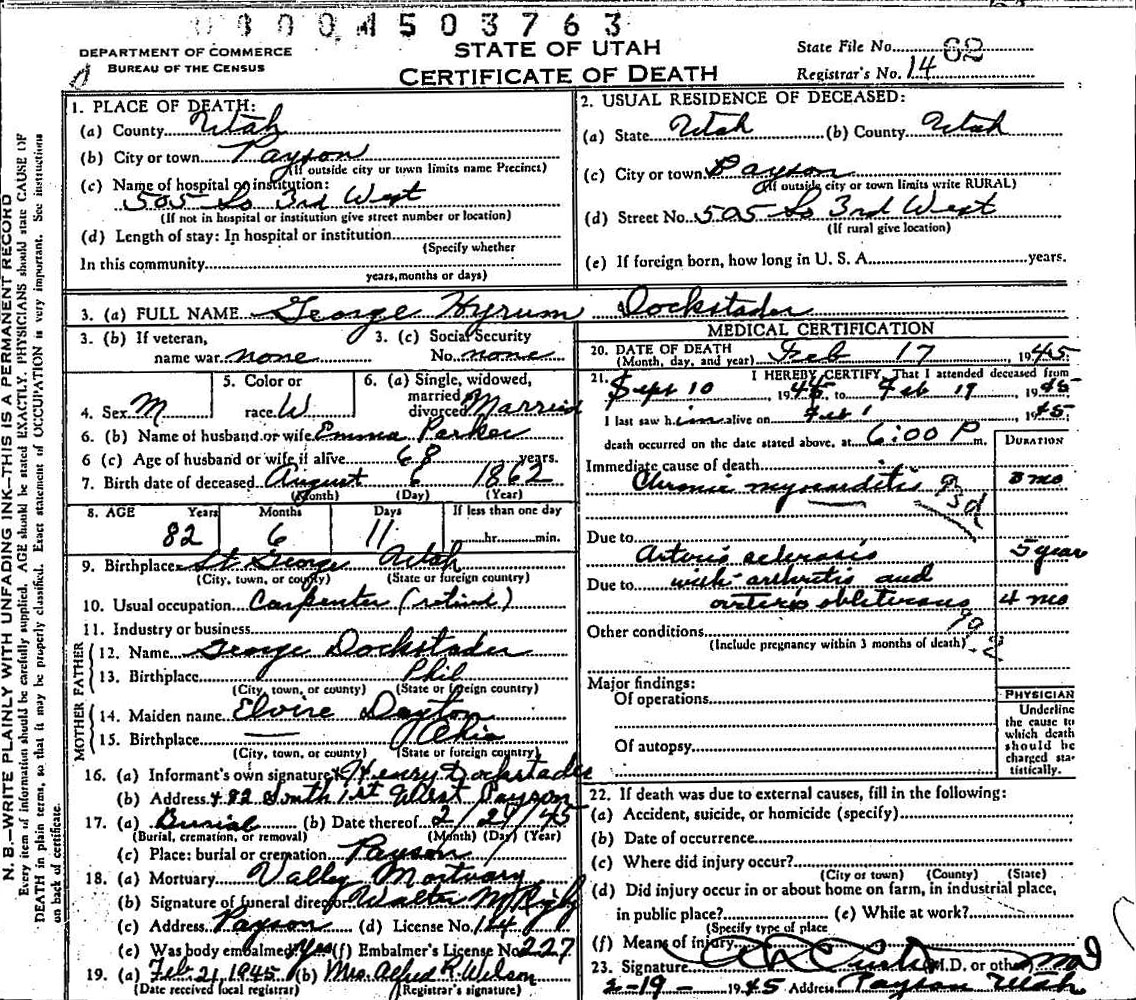 8004503763
DEPARTMENT OF COMMERCE
BUREAU OF THE CENSUS
STATE OF UTAH
CERTIFICATE OF DEATH
State File No. 62
Registrar's No. 14
N. B.—WRITE PLAINLY WITH UNFADING INK—THIS IS A PERMANENT RECORD
Every item of information should be carefully supplied. AGE should be stated EXACTLY. PHYSICIANS should state CAUSE OF
DEATH in plain terms, so that it may be properly classified. Exact statement of OCCUPATION is very important. See instructions
on back of certificate.
1. PLACE OF DEATH:
(a) County Utah
(b) City or town Payson
(If outside city or town limits name Precinct)
(c) Name of hospital or institution:
505 So 3rd West
(If not in hospital or institution give street number or location)
(d) Length of stay: In hospital or institution
(Specify whether
In this community
years, months or days)
2. USUAL RESIDENCE OF DECEASED:
(a) State Utah (b) County Utah
(c) City or town Payson
(If outside city or town limits write RURAL)
(d) Street No. 505 So 3rd West
(If rural give location)
(e) If foreign born, how long in U. S. A. years.
3. (a) FULL NAME George Hyrum Dockstader
3. (b) If veteran, 3. (c) Social Security
name war none No. none
4. Sex M 5. Color or race W 6. (a) Single, widowed, married, divorced Married
6. (b) Name of husband or wife Emma Parker
6 (c) Age of husband or wife if alive 68 years.
7. Birth date of deceased August 6 1862
(Month) (Day) (Year)
8. AGE Years Months Days If less than one day
82 6 11 hr. min.
9. Birthplace St George Utah
(City, town, or county) (State or foreign country)
10. Usual occupation Carpenter (retired)
11. Industry or business
FATHER
12. Name George Dockstader
13. Birthplace Phil
(City, town, or county) (State or foreign country)
MOTHER
14. Maiden name Elvire Dayton
15. Birthplace — Ohio
(City, town, or county) (State or foreign country)
16. (a) Informant's own signature Henry Dockstader
(b) Address 482 South 1st West Payson
17. (a) Burial (b) Date thereof 2/21/45
(Burial, cremation, or removal) (Month) (Day) (Year)
(c) Place: burial or cremation Payson
18. (a) Mortuary Valley Mortuary
(b) Signature of funeral director Walter M Rigby
(c) Address Payson (d) License No. 124
(e) Was body embalmed Yes (f) Embalmer's License No. 227
19. (a) Feb 21, 1945 (b) Mrs. Alfred R. Wilson
(Date received local registrar) (Registrar's signature)
MEDICAL CERTIFICATION
20. DATE OF DEATH Feb 17, 1945
(Month, day, and year)
21. I HEREBY CERTIFY, That I attended deceased from
Sept 10, 1944, to Feb 17, 1945
I last saw him alive on Feb 1945
death occurred on the date stated above, at 6:00 P m.
DURATION
Immediate cause of death
Chronic myocarditis 93d 8 mo
Due to
Arterio sclerosis 5 year
Due to with arthritis and
arterio obliterans 4 mo
Other conditions
(Include pregnancy within 3 months of death)
Major findings:
Of operations
Of autopsy
PHYSICIAN
Underline
the cause to
which death
should be
charged sta-
tistically.
22. If death was due to external causes, fill in the following:
(a) Accident, suicide, or homicide (specify)
(b) Date of occurrence
(c) Where did injury occur?
(City or town) (County) (State)
(d) Did injury occur in or about home on farm, in industrial place,
in public place? (e) While at work?
(Specify type of place
(f) Means of injury
23. Signature (M.D. or other) MD
2-19- 1945 Address Payson Utah